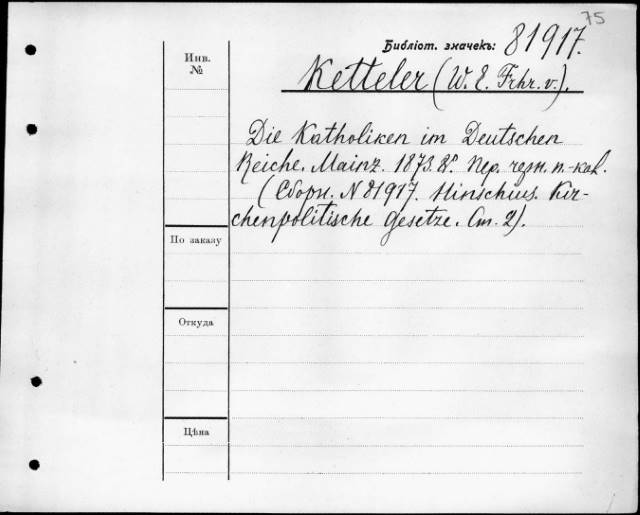 75
Библіот. значекъ: 81917.
Инв.
№
Ketteler (W. E. Frhr. v.).
Die Katholiken im Deutschen
Reiche. Mainz. 1873. 8º. Пер. черн. п.-кол.
(Сборн. N 81917. Hinschius. Kir-
chenpolitische Gesetze. Ст. 2).
По заказу
Откуда
Цѣна